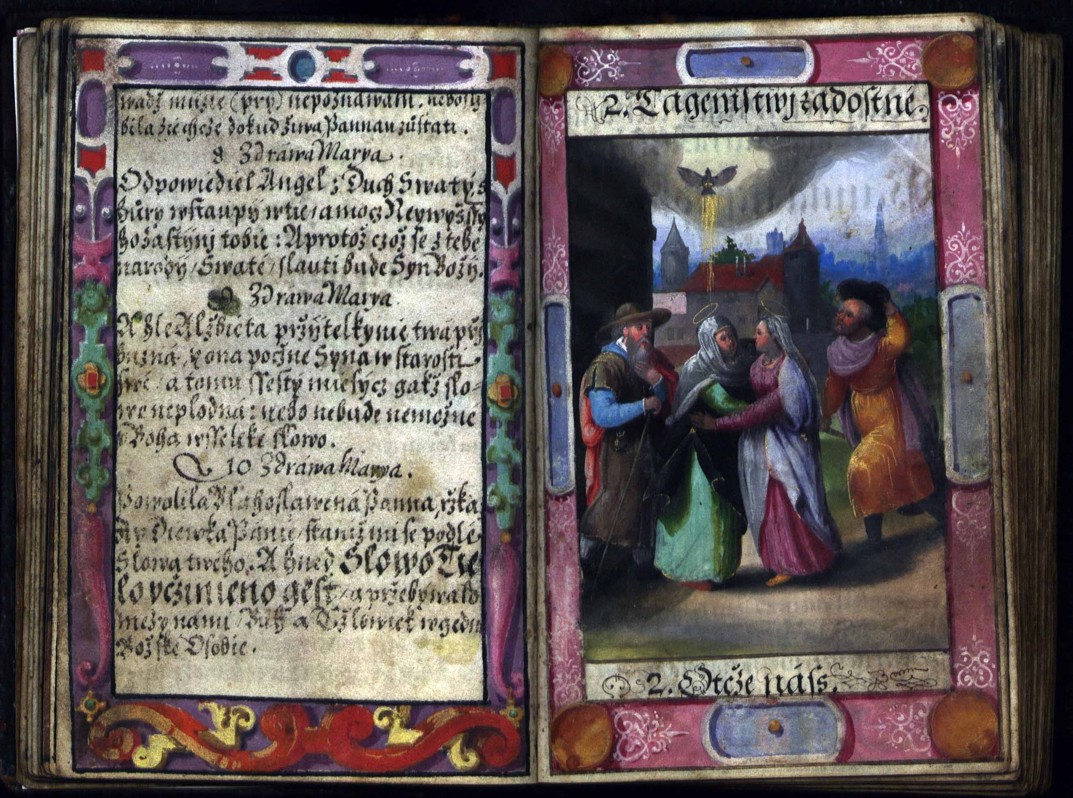 muže (prý) nepoznáwam, nebos
bila žie chcže dokud žiwa Pannau zůstati.
8 Zdráwa Marya.
Odpowiediel Angel: Duch Swatý s
hůry wstaupý w tie / a moc Neywyšssý
ho zastýnj tobie: A protož czož se z tebe
narodý / Swaté / slauti bude Syn Božý.
9 Zdráwa Marya.
A hle Alžbieta přýtelkynie twa pří
buzná, y ona počne Syna w starosti
swé / a tomu ssestý miesýcz gakž slo-
we neplodná: nebo nebude nemožné
v Boha wsseliké slowo.
10 Zdráwa Marya.
Powolila Blahoslawená Panna, řžka
Diewka Panie, staniž mi se podlé
Slowa tweho. A hned Slowo Tie
lo včžinieno gest / a přebýwalo
mezy námi / Bůh a Cžlowiek w gedné
Božské Osobie.
2. Tagemstwj radostné.
2. Otcže náss.